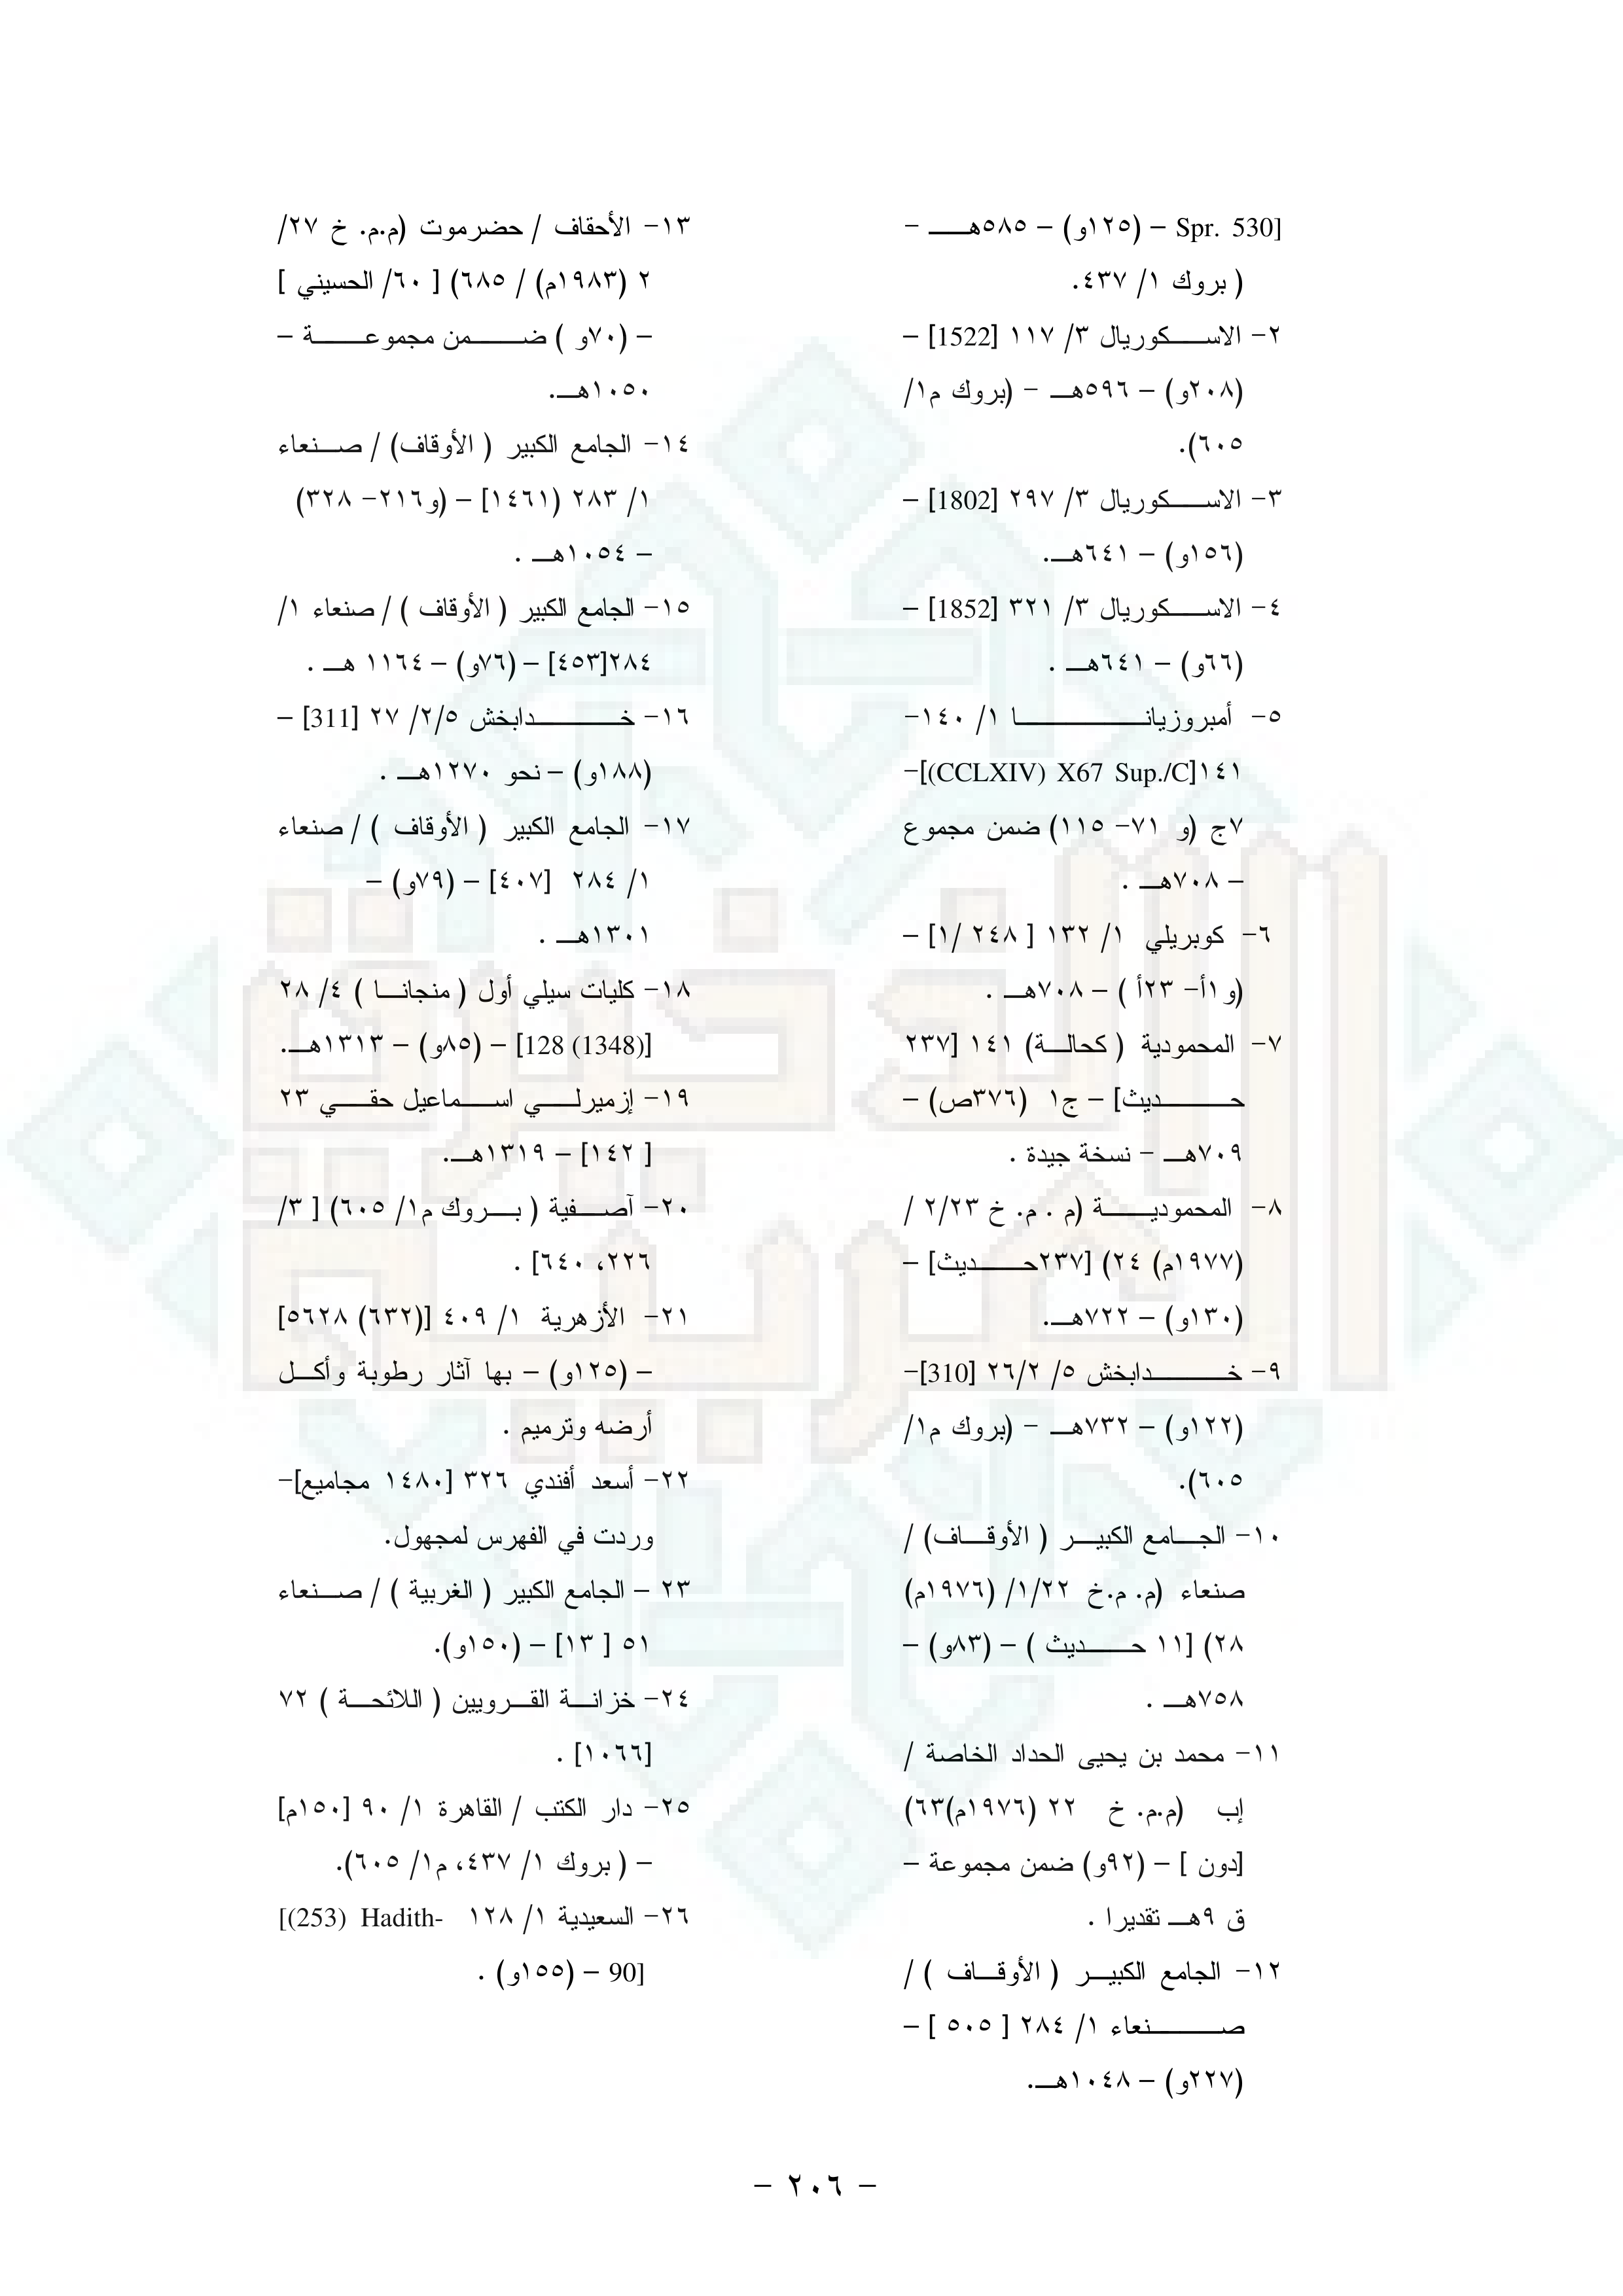 [Spr. 530 – (١٢٥و) – ٥٨٥هـ –
( بروك ١/ ٤٣٧.
٢- الاسكوريال ٣/ ١١٧ [1522] –
(٢٠٨و) – ٥٩٦هـ - (بروك م١/
٦٠٥).
٣- الاسكوريال ٣/ ٢٩٧ [1802] –
(١٥٦و) – ٦٤١هـ.
٤- الاسكوريال ٣/ ٣٢١ [1852] –
(٦٦و) – ٦٤١هـ .
٥- أمبروزيانا ١/ ١٤٠-
١٤١[CCLXIV) X67 Sup./C)]-
٧ج (و ٧١- ١١٥) ضمن مجموع
– ٧٠٨هـ .
٦- كوبريلي ١/ ١٣٢ [ ٢٤٨ /١] –
(و١أ- ٢٣أ ) – ٧٠٨هـ .
٧- المحمودية ( كحالة) ١٤١ [٢٣٧
حديث] – ج١ (٣٧٦ص) –
٧٠٩هـ - نسخة جيدة .
٨- المحمودية (م . م. خ ٢/٢٣ /
(١٩٧٧م) ٢٤) [٢٣٧حديث] –
(١٣٠و) – ٧٢٢هـ.
٩- خدابخش ٥/ ٢٦/٢ [310]-
(١٢٢و) – ٧٣٢هـ - (بروك م١/
٦٠٥).
١٠- الجامع الكبير ( الأوقاف) /
صنعاء (م. م.خ ١/٢٢/ (١٩٧٦م)
٢٨) [١١ حديث ) – (٨٣و) –
٧٥٨هـ .
١١- محمد بن يحيى الحداد الخاصة /
إب (م.م. خ ٢٢ (١٩٧٦م)٦٣)
[دون ] – (٩٢و) ضمن مجموعة –
ق ٩هـ تقديرا .
١٢- الجامع الكبير ( الأوقاف ) /
صنعاء ١/ ٢٨٤ [ ٥٠٥ ] –
(٢٢٧و) – ١٠٤٨هـ.
١٣- الأحقاف / حضرموت (م.م. خ ٢٧/
٢ (١٩٨٣م) / ٦٨٥) [ ٦٠/ الحسيني ]
– (٧٠و ) ضمن مجموعة –
١٠٥٠هـ.
١٤- الجامع الكبير ( الأوقاف) / صنعاء
١/ ٢٨٣ (١٤٦١] – (و٢١٦- ٣٢٨)
– ١٠٥٤هـ .
١٥- الجامع الكبير ( الأوقاف ) / صنعاء ١/
٢٨٤[٤٥٣] – (٧٦و) – ١١٦٤ هـ .
١٦- خدابخش ٢/٥/ ٢٧ [311] –
(١٨٨و) – نحو ١٢٧٠هـ .
١٧- الجامع الكبير ( الأوقاف ) / صنعاء
١/ ٢٨٤ [٤٠٧] – (٧٩و) –
١٣٠١هـ .
١٨- كليات سيلي أول ( منجانا ) ٤/ ٢٨
[128 (1348)] – (٨٥و) – ١٣١٣هـ.
١٩- إزميرلي اسماعيل حقي ٢٣
[ ١٤٢] – ١٣١٩هـ.
٢٠- آصفية ( بروك م١/ ٦٠٥) [ ٣/
٢٢٦، ٦٤٠] .
٢١- الأزهرية ١/ ٤٠٩ [(٦٣٢) ٥٦٢٨]
– (١٢٥و) – بها آثار رطوبة وأكل
أرضه وترميم .
٢٢- أسعد أفندي ٣٢٦ [١٤٨٠ مجاميع]-
وردت في الفهرس لمجهول.
٢٣ – الجامع الكبير ( الغربية ) / صنعاء
٥١ [ ١٣] – (١٥٠و).
٢٤- خزانة القرويين ( اللائحة ) ٧٢
[١٠٦٦] .
٢٥- دار الكتب / القاهرة ١/ ٩٠ [١٥٠م]
– ( بروك ١/ ٤٣٧، م١/ ٦٠٥).
٢٦- السعيدية ١/ ١٢٨ [(253) Hadith-
90] – (١٥٥و) .
– ٢٠٦ –